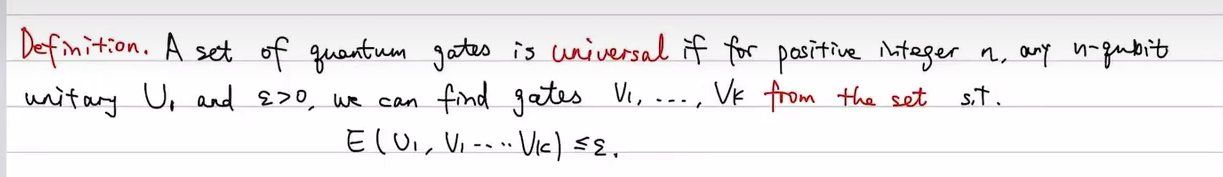 Definition. A set of quantum gates is universal if for positive integer n, any n-qubit
unitary U, and ε>0, we can find gates V₁, ..., Vₖ from the set s.t.
E(U, V₁.....Vₖ) ≤ε.